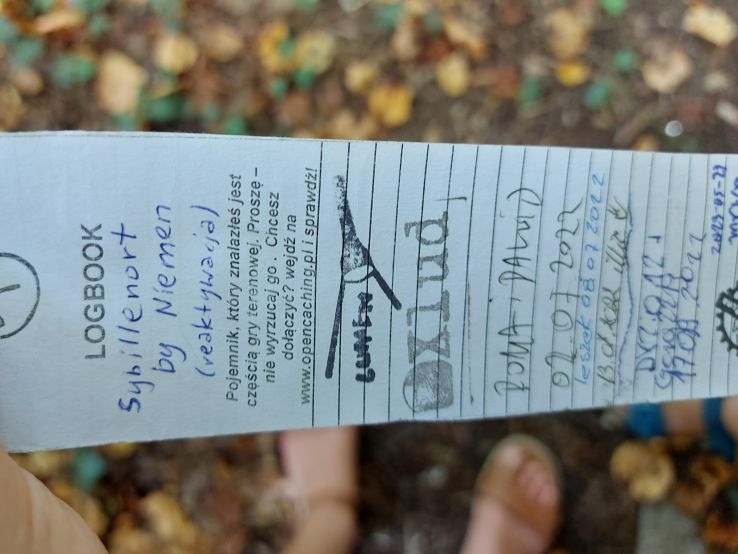 LOGBOOK
Sybillenort
by Niemen
(reaktywacja)
Pojemnik, który znalazłeś jest
częścią gry terenowej. Proszę –
nie wyrzucaj go . Chcesz
dołączyć? wejdź na
www.opencaching.pl i sprawdź!
Oxiud
ROMA i DAWID
02.07.2022
leszek 08 07 2022
17 08 2022
2023-05-29